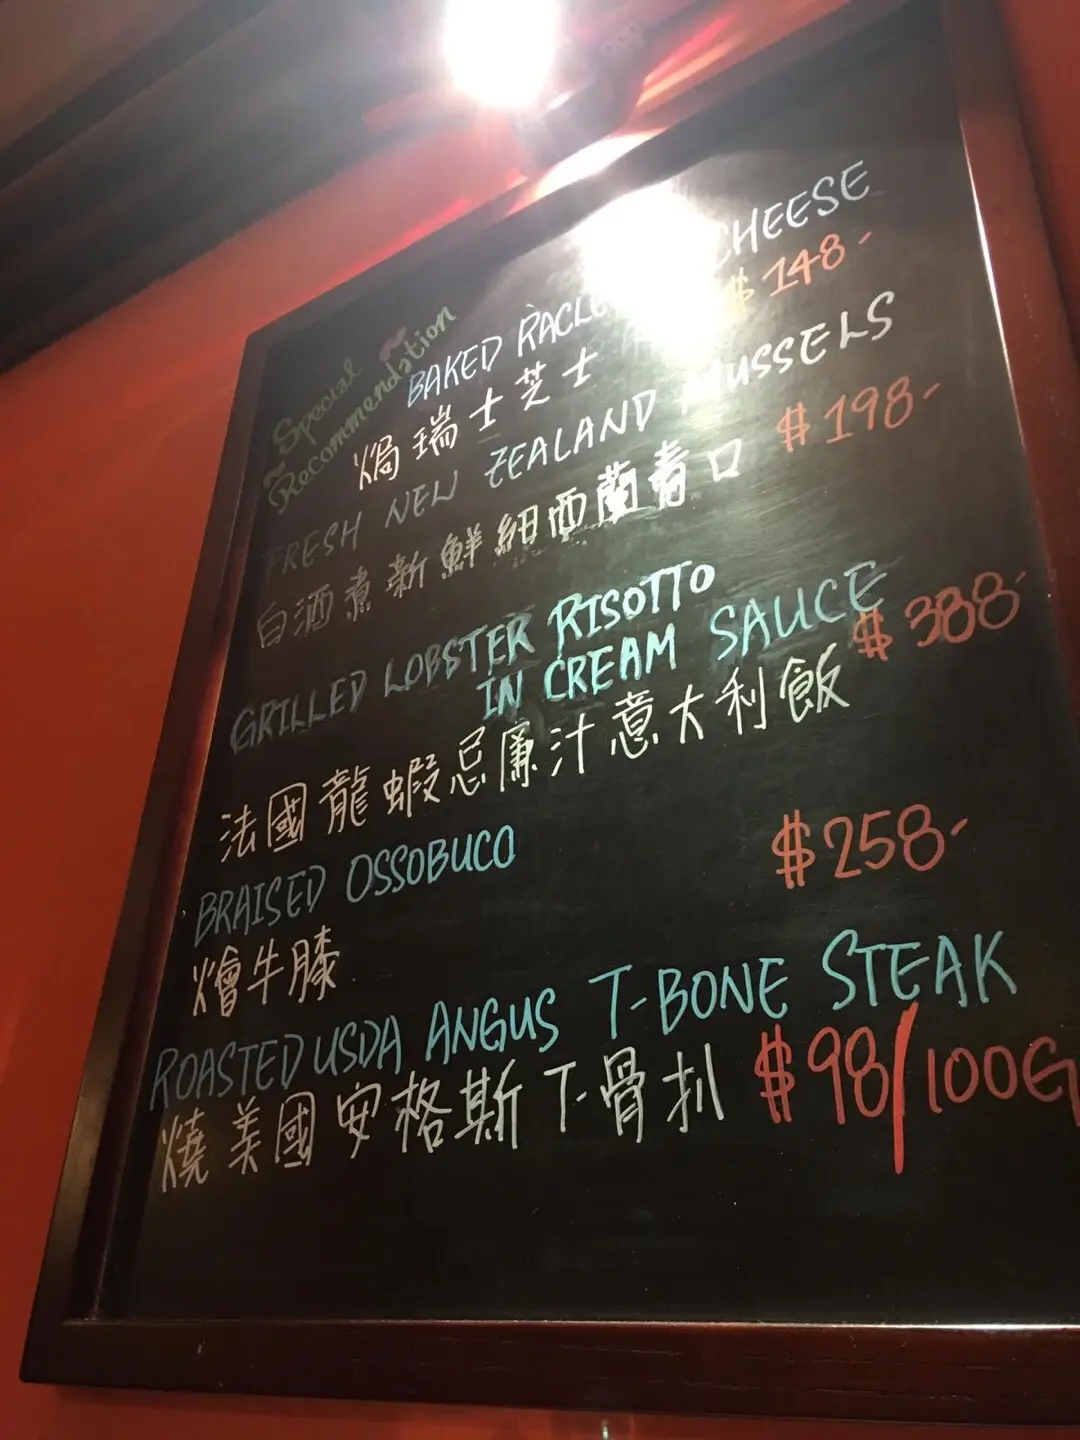 Special
~Recommendation~
BAKED RACLE CHEESE
$148-
焗瑞士芝士
FRESH NEW ZEALAND MUSSELS
$198-
白酒煮新鮮紐西蘭青口
GRILLED LOBSTER RISOTTO
IN CREAM SAUCE
$388-
法國龍蝦忌廉汁意大利飯
BRAISED OSSOBUCO
$258-
燴牛膝
ROASTED USDA ANGUS T-BONE STEAK
燒美國安格斯T-骨扒 $98/100G